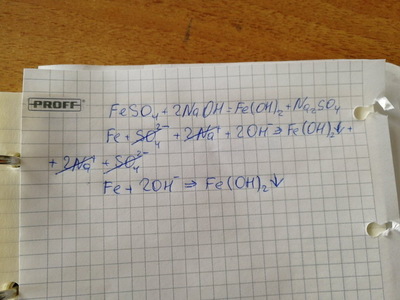 PROFF
FeSO₄ + 2NaOH = Fe(OH)₂ + Na₂SO₄
Fe + SO₄²⁻ + 2Na⁺ + 2OH ⇒ Fe(OH)₂↓ +
+ 2Na⁺ + SO₄²⁻
Fe + 2OH⁻ ⇒ Fe(OH)₂↓